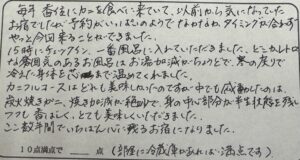 毎年 香住にカニを食べに来ていて、以前から気になっていた
お宿でしたが予約がいっぱいのようでなかなかタイミングが合わず
やっと今回来ることができました。
15時にチェックイン、一番風呂に入れていただきました。とてもレトロ
な雰囲気のあるお風呂はお湯加減がちょうどで、寒い屋りで
冷えた身体を芯まで温めてくれました。
カニフルコースはどれも美味しいのですが、中でも感動したのは、
炭火焼きガニ、焼き加減が絶妙で、身の中心部分が半生状態を残し
つつも香ばしく、とても美味しくいただきました。
ここ数年間でいちばん心に残るお宿になりました。
10点満点で 点 (部屋に冷蔵庫があれば満点です)